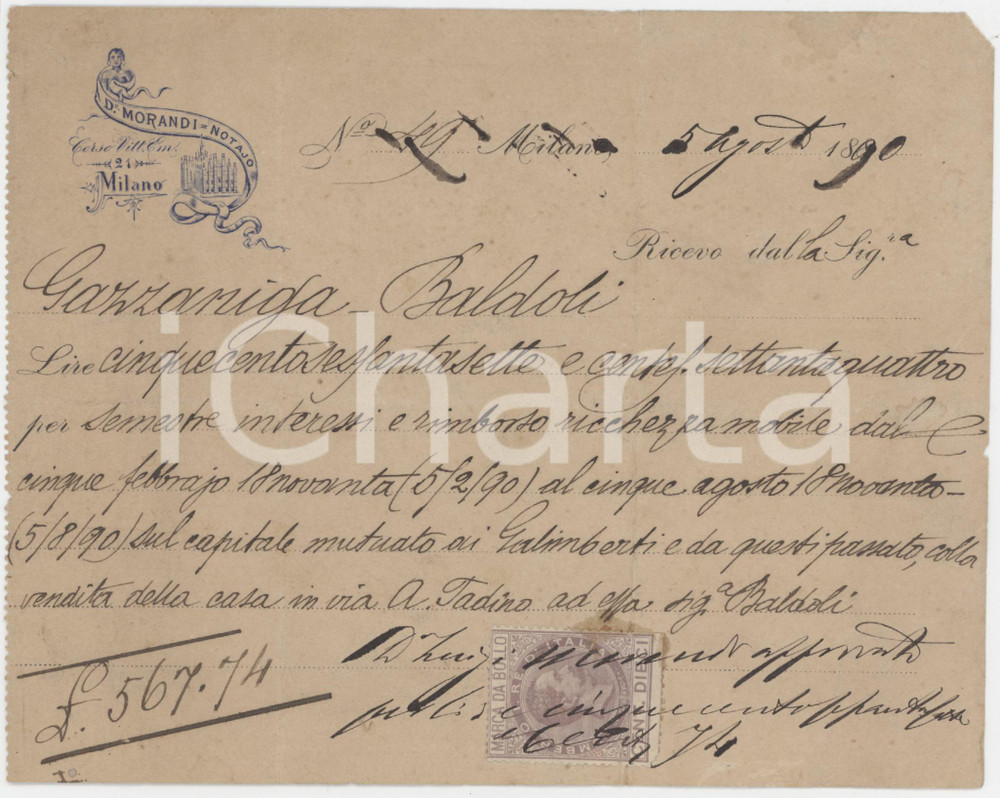 Dr. MORANDI = NOTAJO
Corso Vitt. Em.
21
Milano
No Milano, 5 Agosto 1890
Ricevo dalla Sig.ra
Gazzaniga - Baldoli
Lire cinquecentosessantasette e centes. settantaquattro
per semestre interessi e rimborso ricchezza mobile dal
cinque febbrajo 18novanta (5/2/90) al cinque agosto 18novanta -
(5/8/90) sul capitale mutuato ai Galimberti e da questi passato, colla
vendita della casa in via A. Tadino ad essa sig.a Baldoli
£. 567.74
Dr Luigi Morandi
per Lire cinquecento
Cent. 74
MARCA DA BOLLO
REGNO ITALIA
CENT. DIECI
iCharta